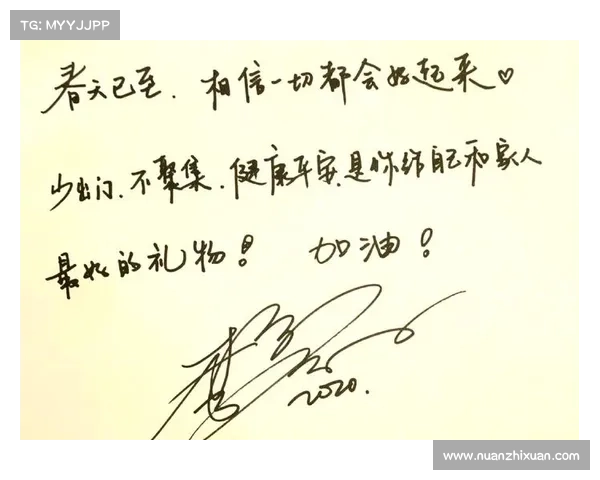 TG: MYYJJPP
春天已至，相信一切都会好起来♡
少出门、不聚集，健康平安是你给自己和家人
最好的礼物！ 加油！
2020.
www.nuanzhixuan.com